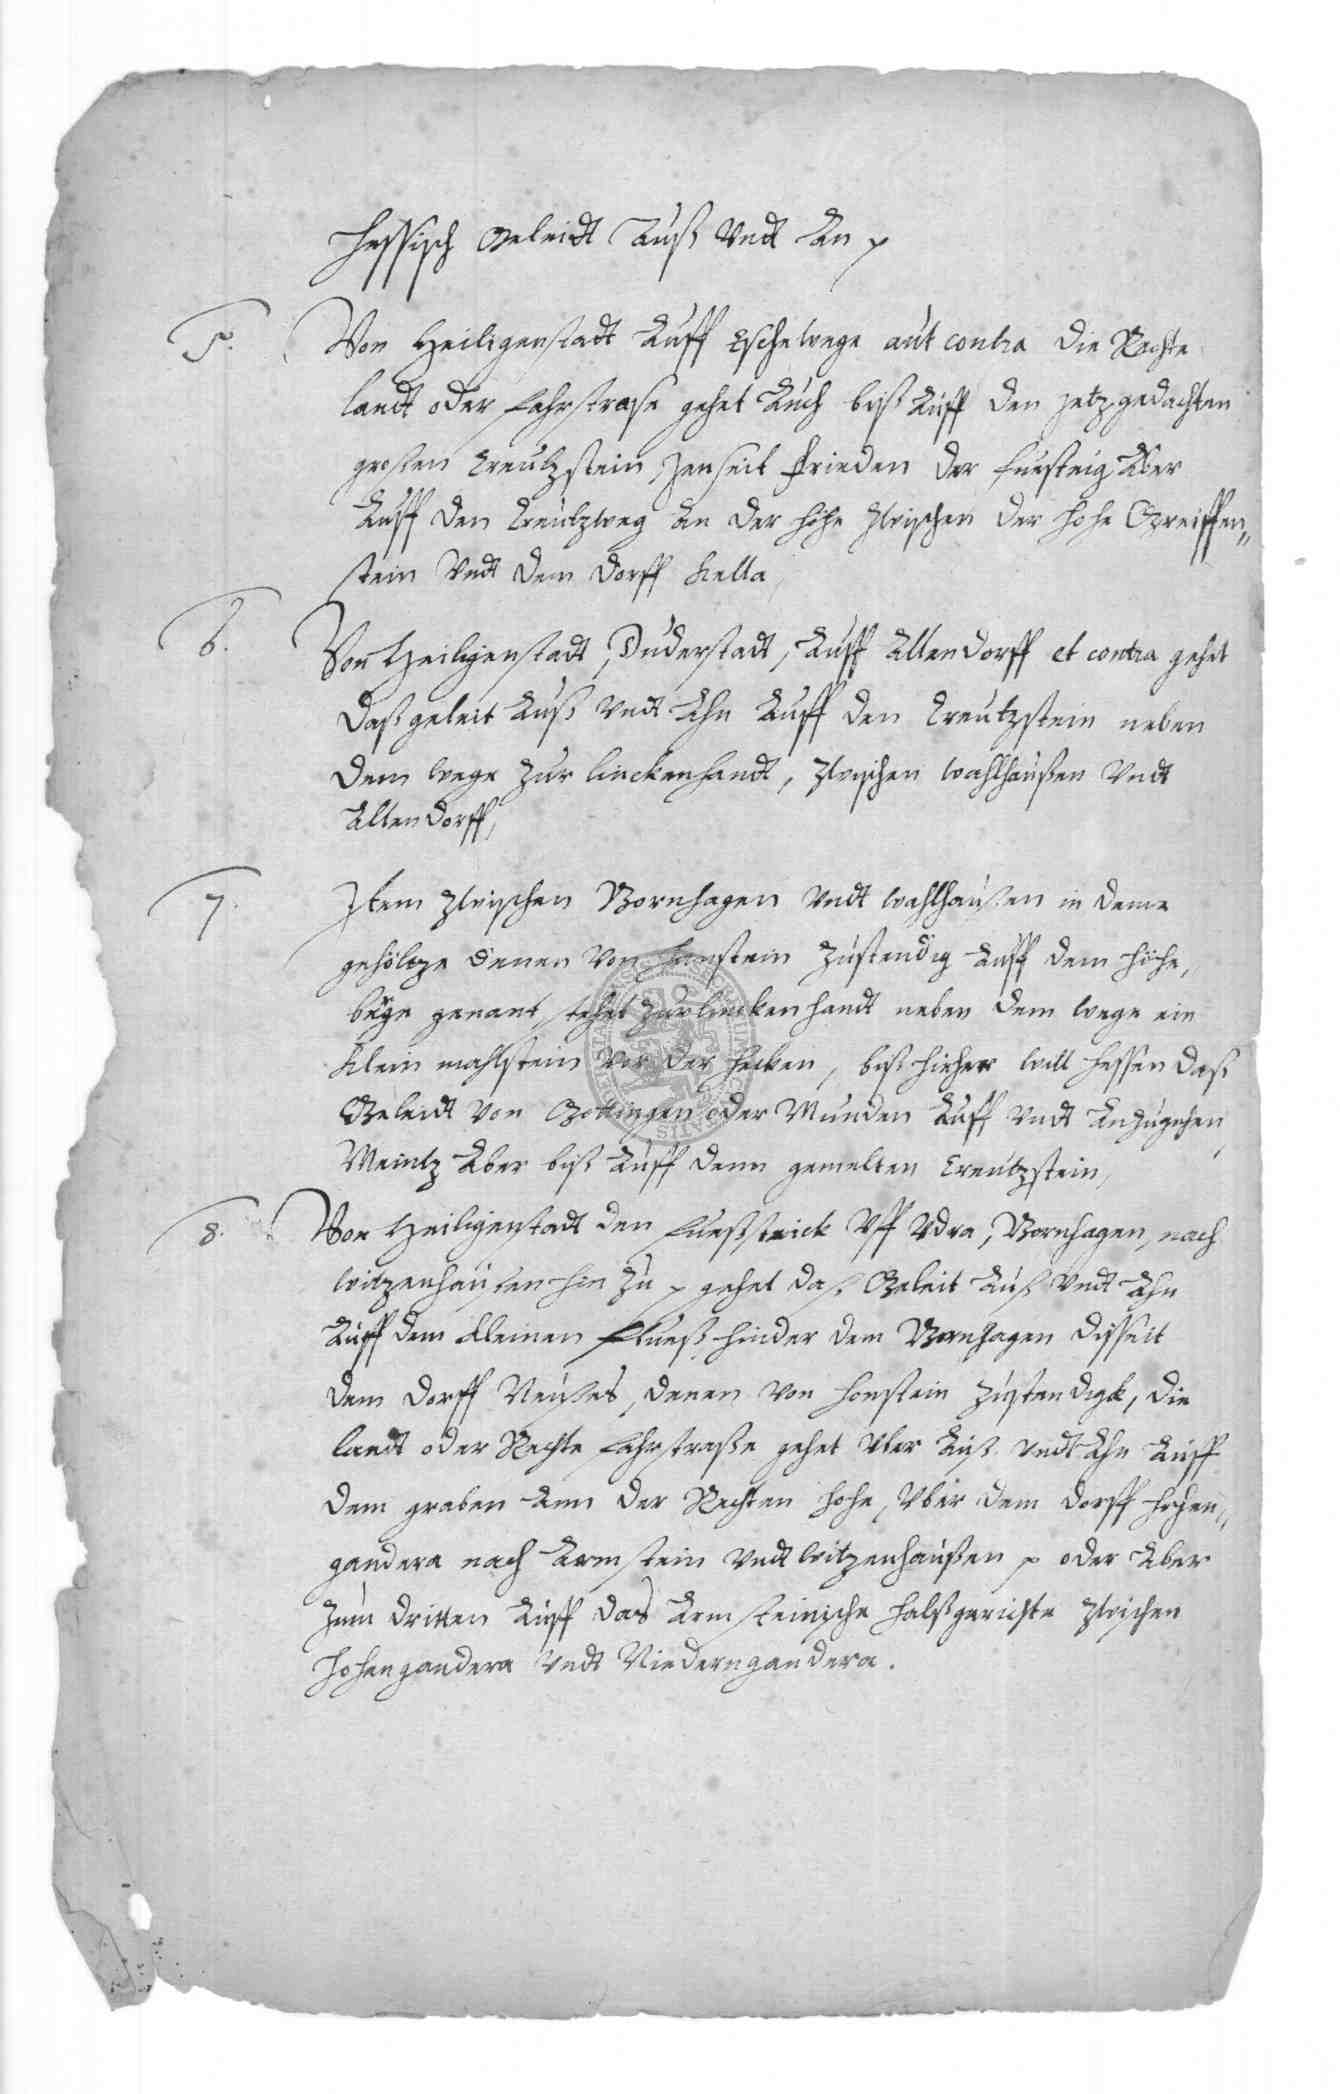 Hessisch Geleidt Auß Vndt An p
5. Von Heiligenstadt Auff Eschewege aut contra die Rechte
landt oder Fahrstrase gehet Auch biß Auff den jetzgedachten
großen Creutzstein, Jenseit Frieden der Fuesteig Aber
Auff den Creutzweg An der Höhe Zwischen der hohe Greiffen„
stein Vndt dem Dorff Kella,
6. Von Heiligenstadt, Duderstadt, Auff Allendorff et contra gehet
daß geleit Auß Vndt Ahn Auff den Creutzstein neben
dem wege zur linckenhandt, Zwischen wahlhaußen Vndt
Allendorff,
7. Item Zwischen Bornhagen Vndt wahlhaußen in deme
gehöltze denen Von Hanstein Zustendig Auff dem Höhe,
berge genant, stehet zur lincken handt neben dem wege ein
Klein mahlstein Vor der Hecken, biß hieher will Hessen daß
Geleidt Von Gottingen oder Munden Auff Vndt Anzugehen,
Meintz Aber biß Auff denn gemelten Creutzstein,
8. Von Heiligenstadt den Fueßsteick Vff Vdra, Bornhagen, nach
witzenhaußen hin Zu p gehet daß Geleit Auß Vndt Ahn
Auff dem Kleinen Flueß hinder dem Bornhagen dißseit
dem Dorff Neußes, denen Von Honstein Zustendigk, die
landt oder Rechte Fahrstraße gehet Aber Auß Vndt Ahn Auff
dem graben Ann der Rechten Hohe, Vber dem Dorff Hohen„
gandera nach Armstein Vndt witzenhaußen p oder Aber
Zum dritten Auff das Armsteinische Halßgerichte Zwischen
Hohengandera Vndt Niederngandera.